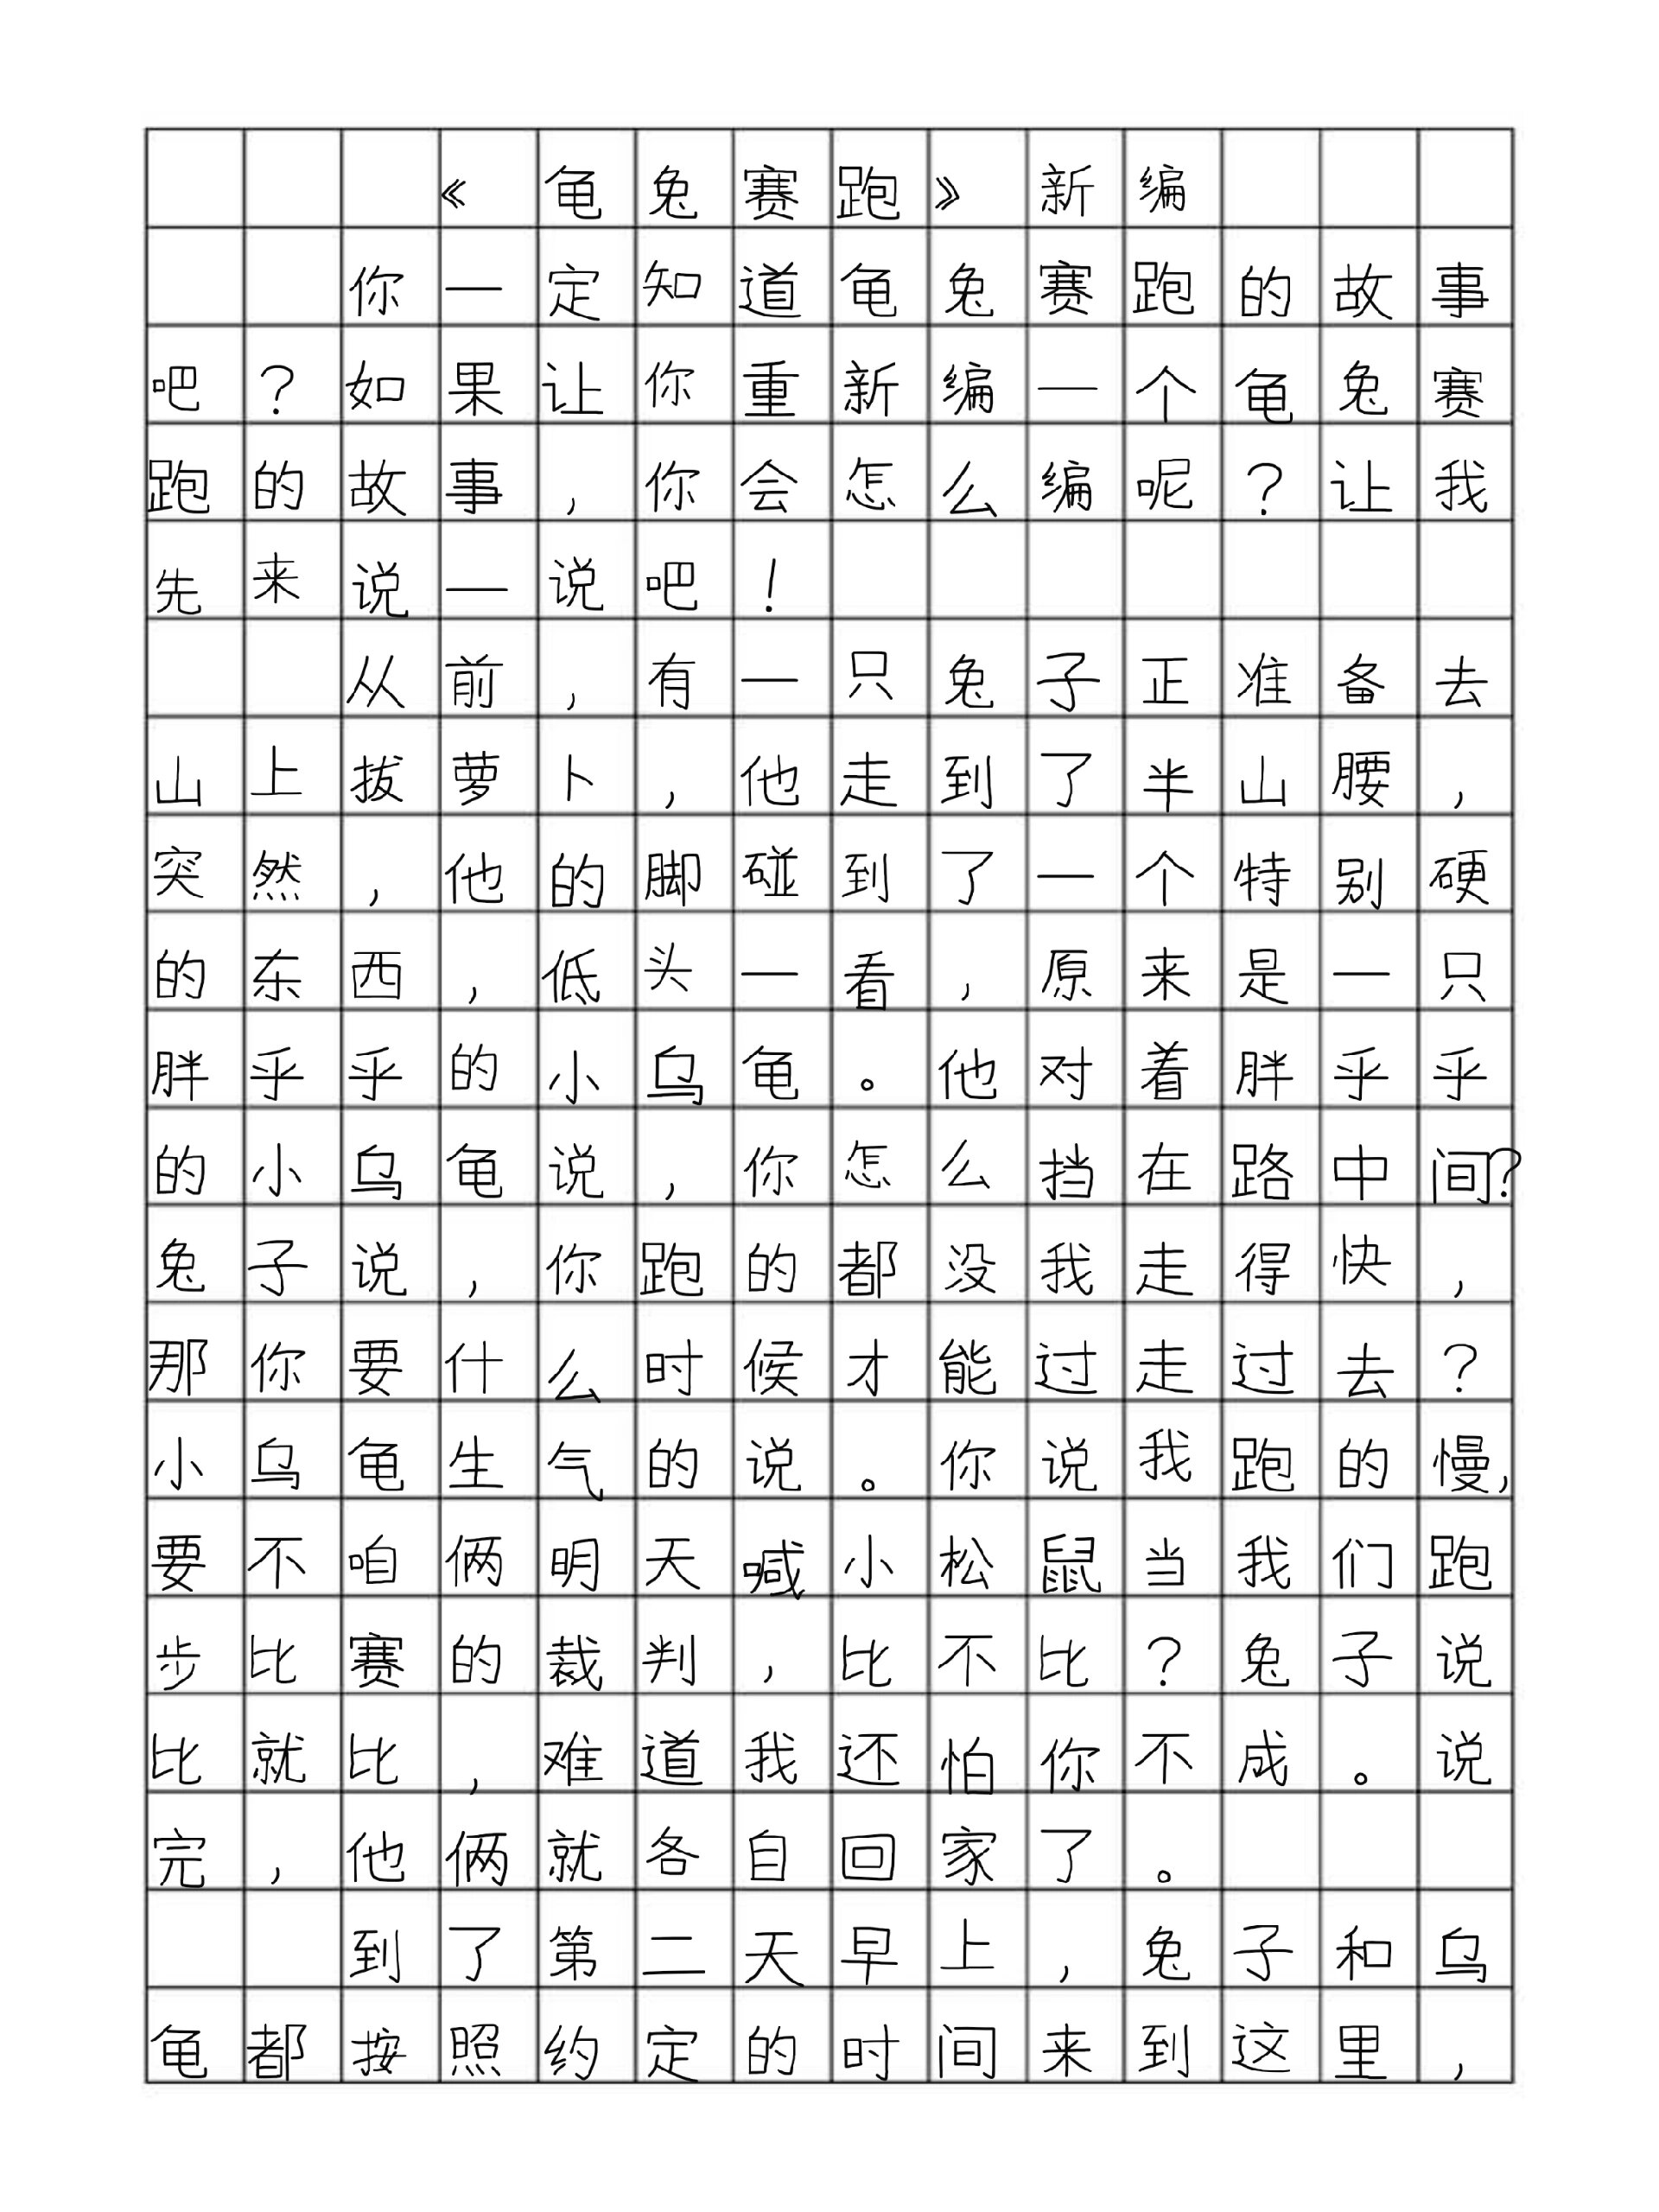 《龟兔赛跑》新编
你一定知道龟兔赛跑的故事
吧？如果让你重新编一个龟兔赛
跑的故事，你会怎么编呢？让我
先来说一说吧！
从前，有一只兔子正准备去
山上拔萝卜，他走到了半山腰，
突然，他的脚碰到了一个特别硬
的东西，低头一看，原来是一只
胖乎乎的小乌龟。他对着胖乎乎
的小乌龟说，你怎么挡在路中间？
兔子说，你跑的都没我走得快，
那你要什么时候才能过走过去？
小乌龟生气的说。你说我跑的慢，
要不咱俩明天喊小松鼠当我们跑
步比赛的裁判，比不比？兔子说
比就比，难道我还怕你不成。说
完，他俩就各自回家了。
到了第二天早上，兔子和乌
龟都按照约定的时间来到这里，